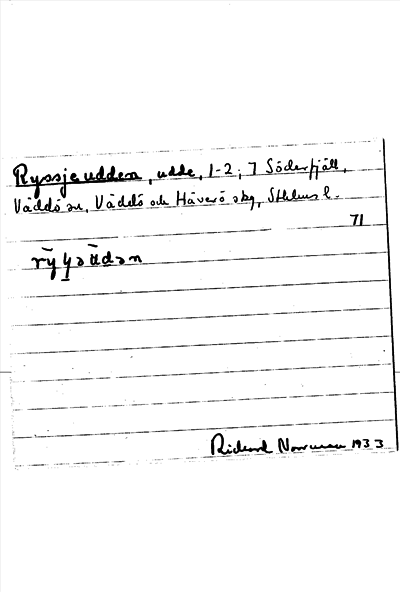 Ryssjeudden, udde, 1-2, 7 Söderfjäll,
Väddö sn, Väddö och Häverö skg, Sthlms l.
71
Richard Norrman 1933